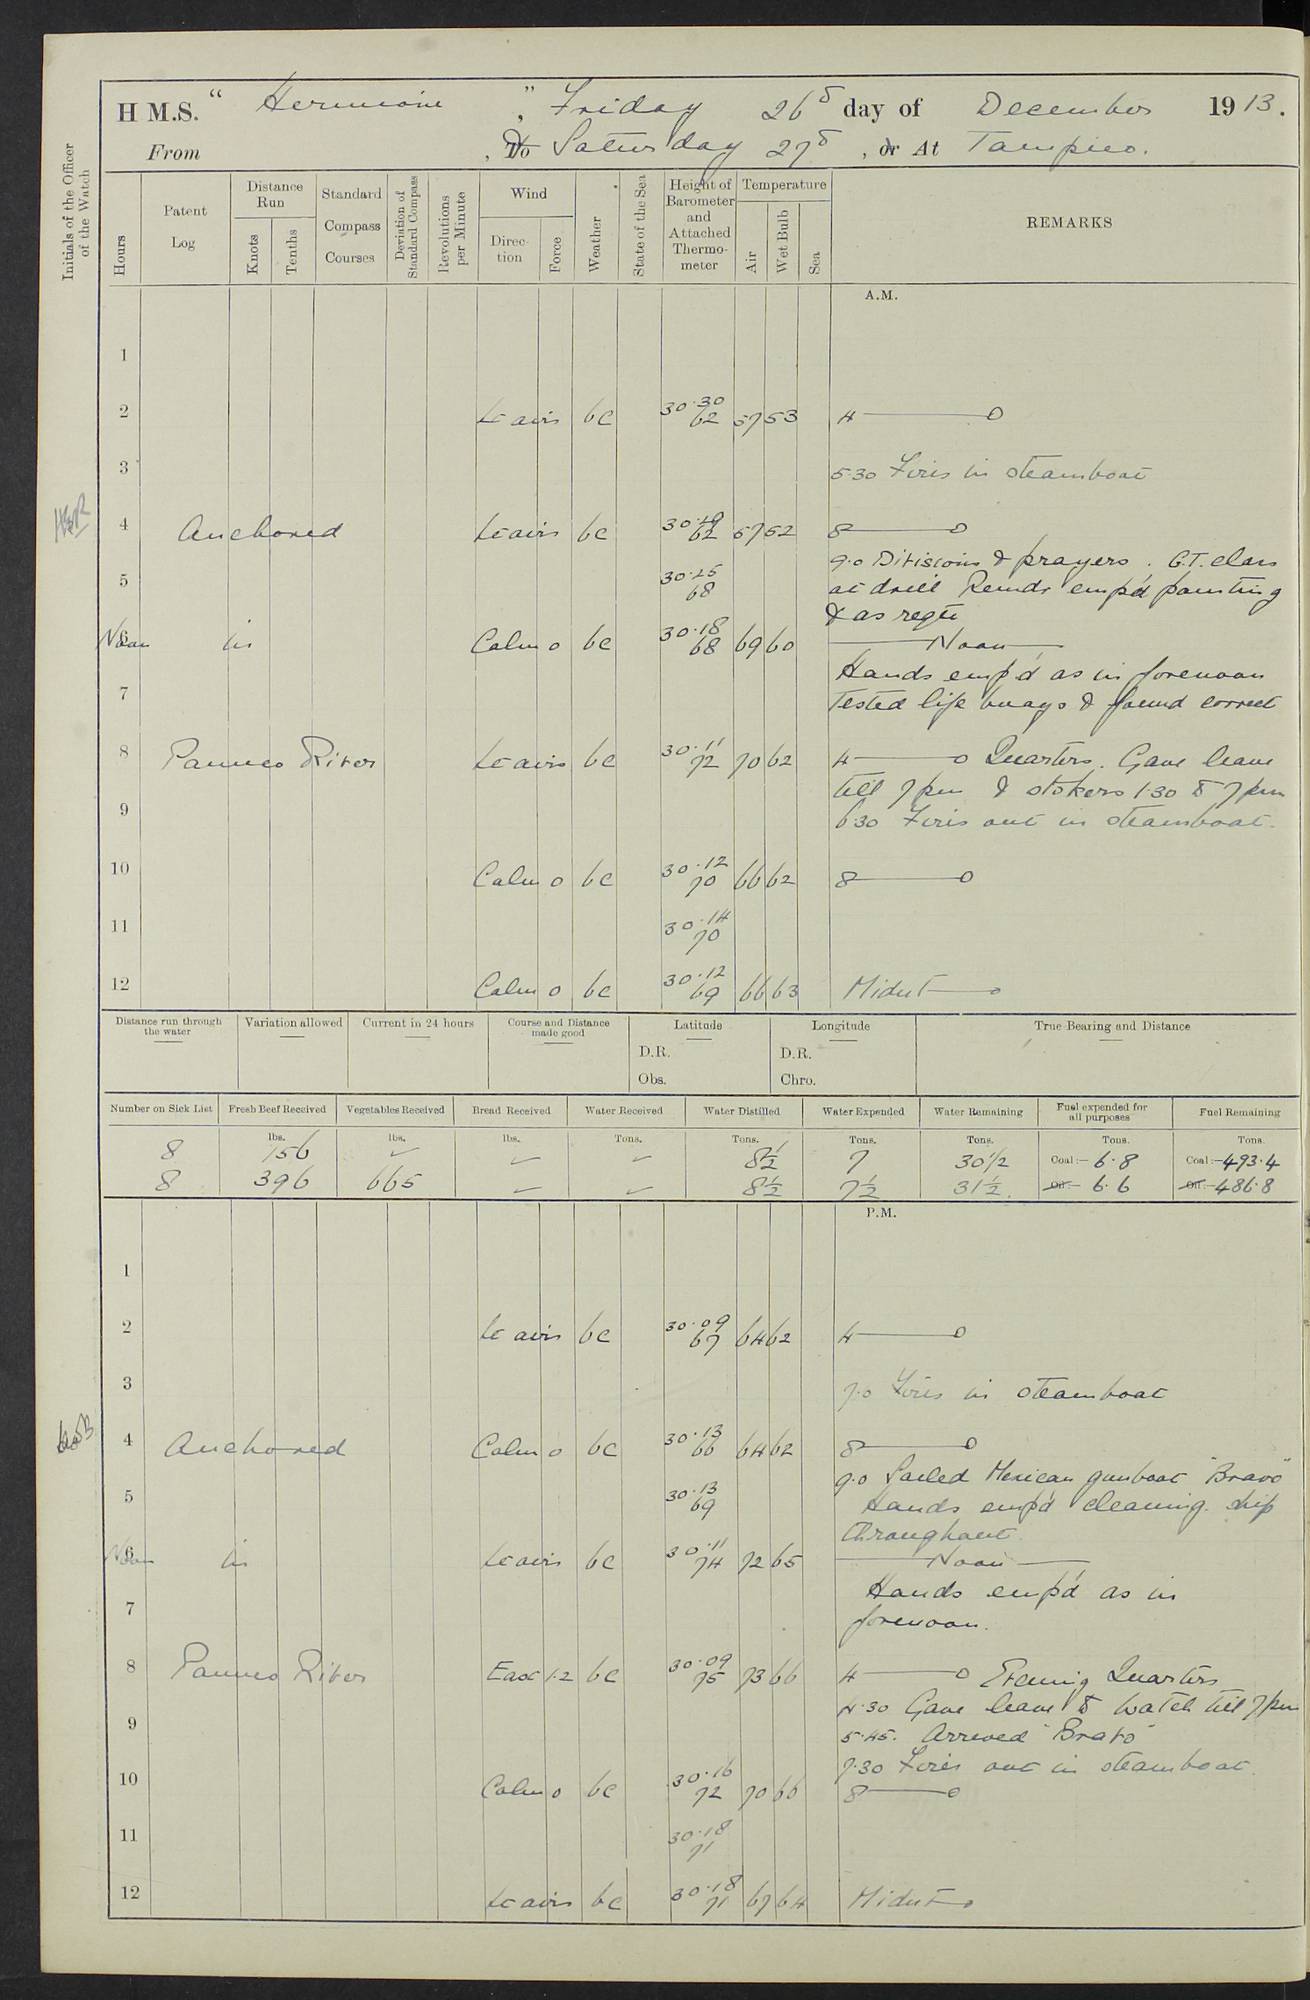 H M.S. " Hermione ", Friday 26th day of December 1913.
From , To & Saturday 27th , or At Tampico.
Initials of the Officer of the Watch
Hours
Patent Log
Distance Run
Knots
Tenths
Standard Compass Courses
Deviation of Standard Compass
Revolutions per Minute
Wind
Direction
Force
Weather
State of the Sea
Height of Barometer and Attached Thermometer
Temperature
Air
Wet Bulb
Sea
REMARKS
A.M.
1
2 Lt airs bc 30.30 62 57 53 4
3 5.30 Fires in steamboat
4 Anchored Lt airs bc 62 57 52 8
9.0 Divisions & prayers. G.T. class
5 30.25 68 at drill Remdr emp'd painting
& as reqte
Noon 6 in Calm 0 bc 30.18 68 69 60 Noon
Hands emp'd as in forenoon
7 Tested life buoys & found correct
8 Panuco River Lt airs bc 30.11 72 70 62 4 Quarters. Gave leave
till 7 pm & stokers 1.30 to 7 pm
9 6.30 Fires out in steamboat.
10 Calm 0 bc 30.12 70 66 62 8
11 30.14 70
12 Calm 0 bc 30.12 69 66 63 Midnt
Distance run through the water
Variation allowed
Current in 24 hours
Course and Distance made good
Latitude
D.R.
Obs.
Longitude
D.R.
Chro.
True Bearing and Distance
Number on Sick List Fresh Beef Received Vegetables Received Bread Received Water Received Water Distilled Water Expended Water Remaining Fuel expended for all purposes Fuel Remaining
lbs. lbs. lbs. Tons. Tons. Tons. Tons. Tons. Tons
8 156 ✓ ✓ ✓ 8½ 7 30½ Coal:- 6.8 Coal:- 493.4
8 396 665 ✓ ✓ 8½ 7½ 31½ Oil:- 6.6 Oil:- 486.8
P.M.
1
2 Lt airs bc 30.09 67 64 62 4
3 7.0 Fires in steamboat
4 Anchored Calm 0 bc 30.13 66 64 62 8
9.0 Sailed Mexican gunboat "Bravo"
5 30.13 69 Hands emp'd cleaning ship
throughout.
Noon 6 in Lt airs bc 30.11 74 72 65 Noon
Hands emp'd as in
7 forenoon.
8 Panuco River East 1.2 bc 30.09 75 73 66 4 Evening Quarters
4.30 Gave leave to watch till 7 pm
9 5.45. Arrived "Bravo"
7.30 Fires out in steamboat.
10 Calm 0 bc 30.16 72 70 66 8
11 30.18 71
12 Lt airs bc 30.18 71 67 64 Midnt